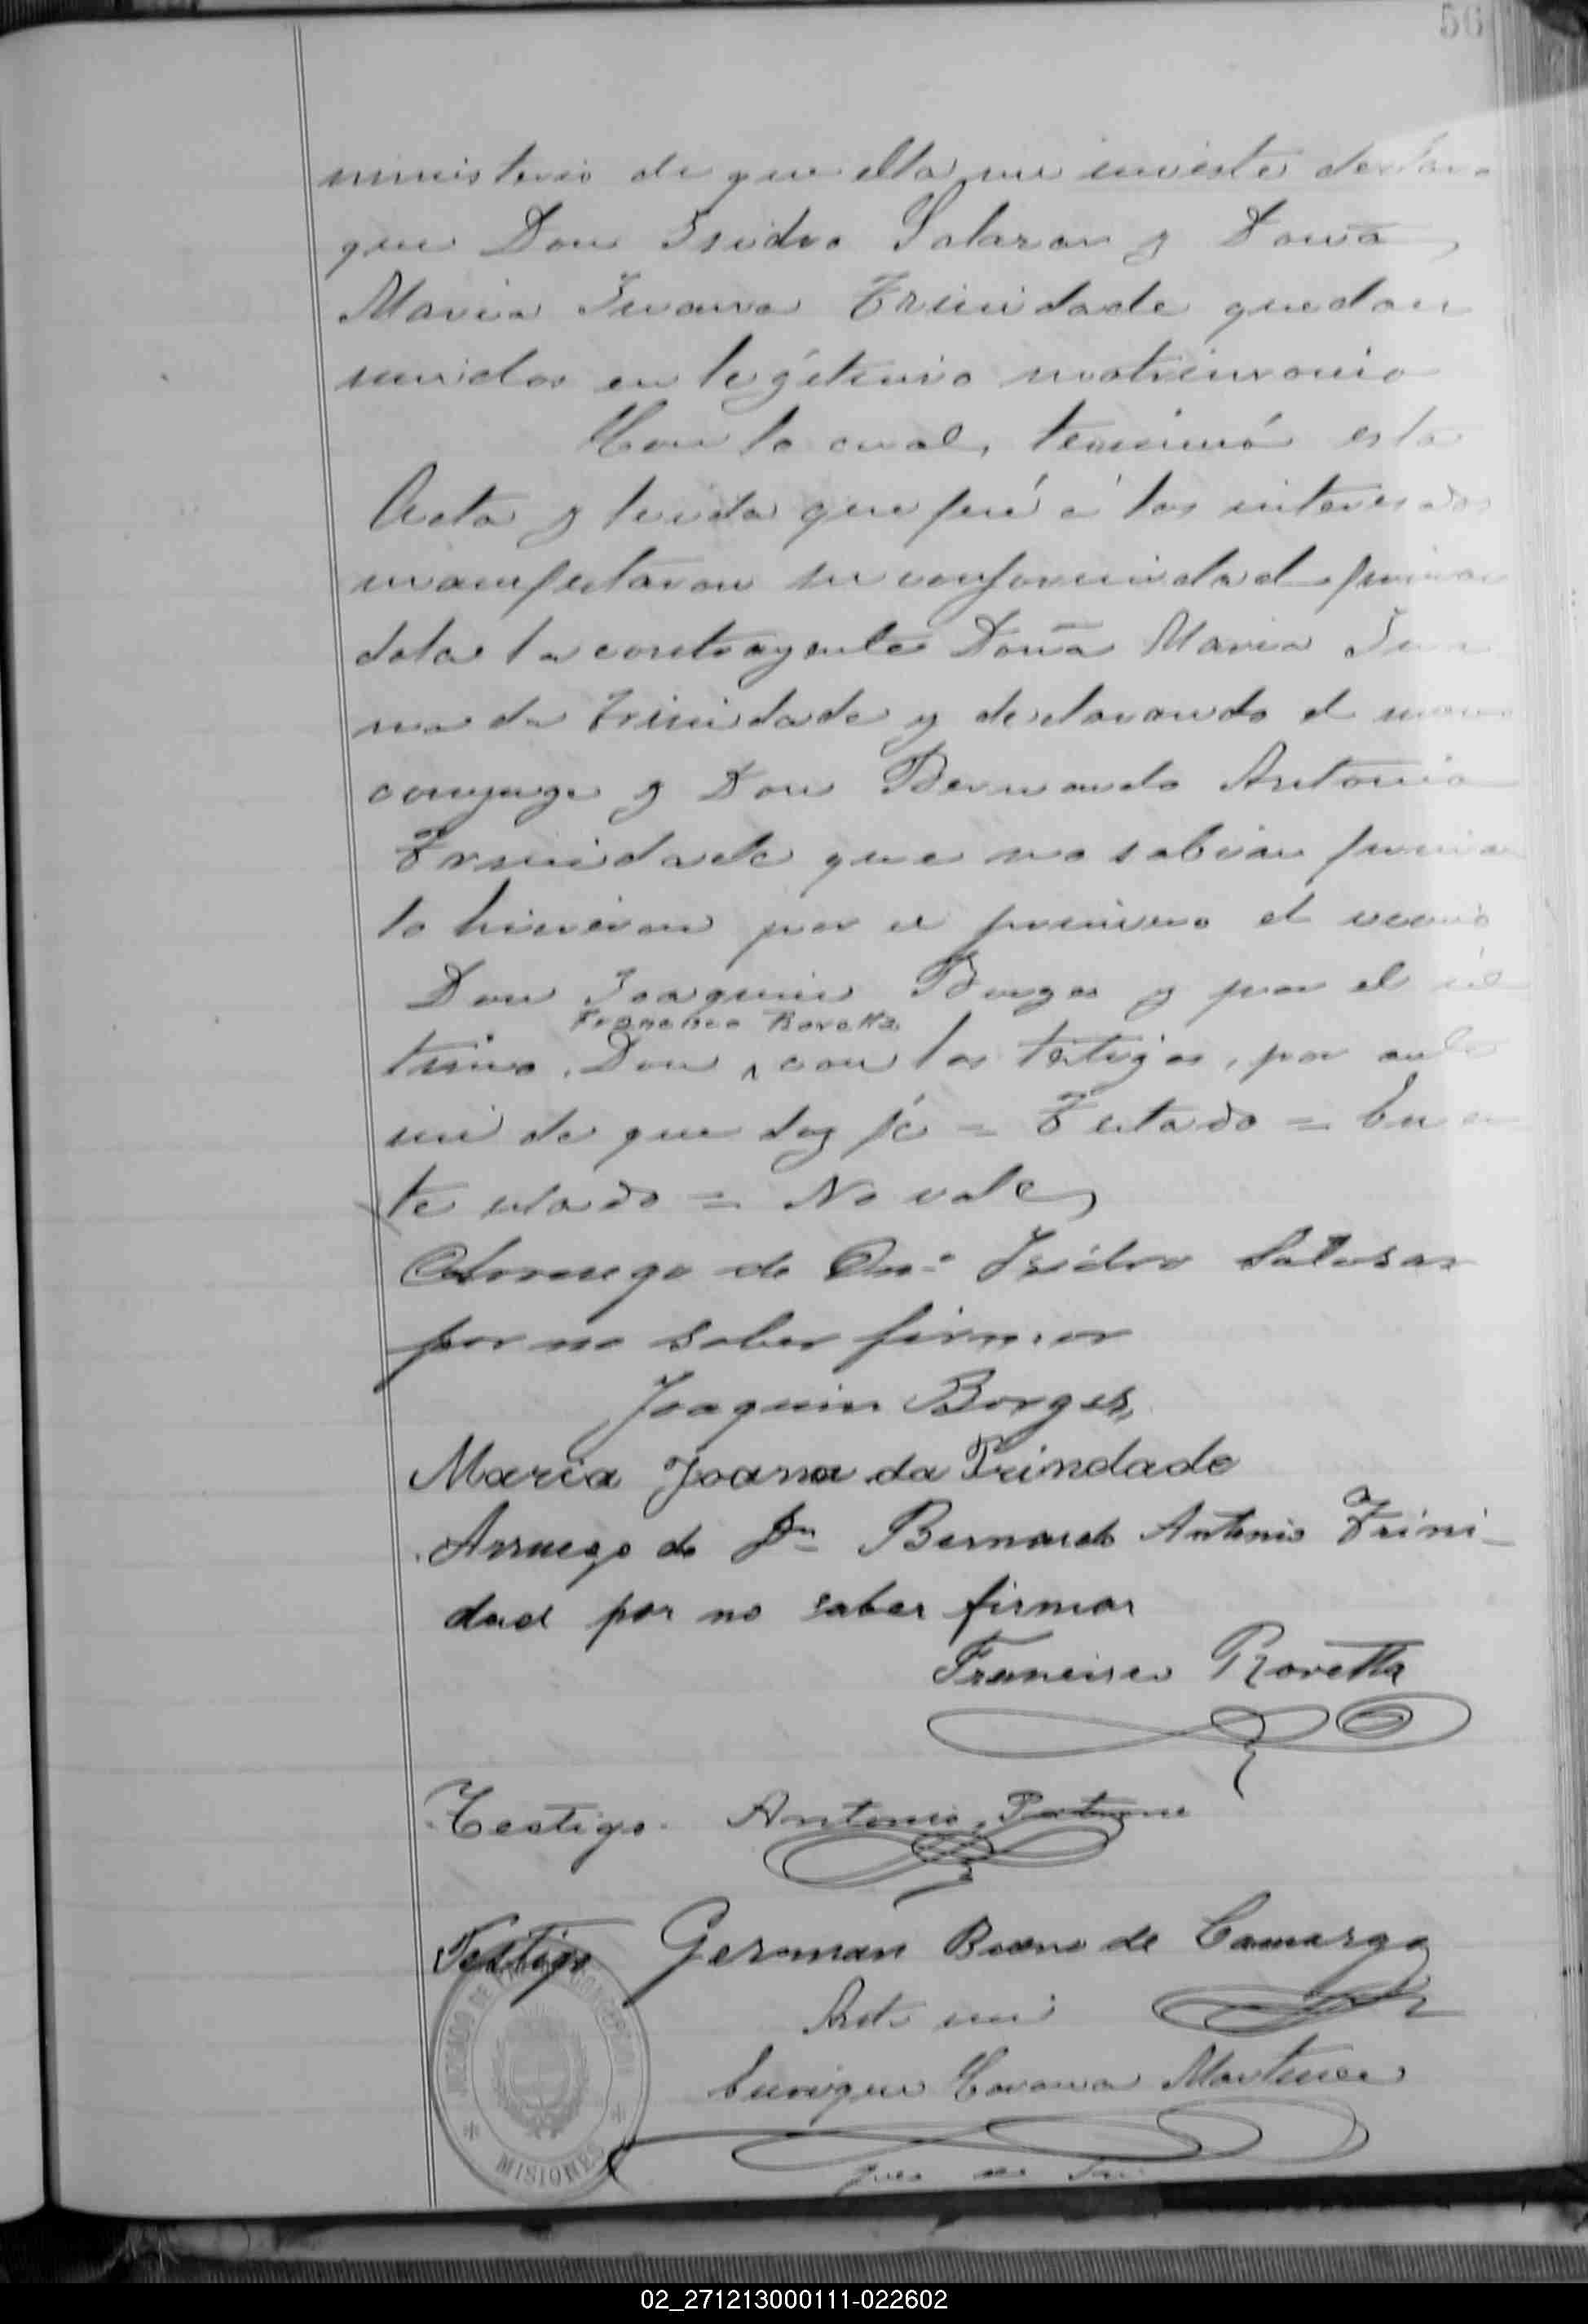 56
ministerio de que ella me inviste declaro
que Don Isidro Salazar y Doña
Maria Juana Trinidade quedan
unidos en legítimo matrimonio
Con lo cual, terminó esta
Acta y leida que fué á los interesados
manifestaron su conformidad firman
dola la contrayente Doña Maria Jua
na da Trinidade y declarando el
conyuge y Don Bernardo Antonio
Trinidade que no sabian firmar
lo hicieron por el primero el vecino
Don Joaquin Borges y por el úl
Francisco Rovetta
timo, Don con los testigos, por ante
mi de que doy fé = Testado =
te = No vale
Arruego de Dn. Isidro Salasar
por no saber firmar
Joaquin Borges
Maria Joana da Trindade
Arruego de Dn Bernardo Antonio Trini-
dad por no saber firmar
Francisco Rovetta
Testigo. Antonio
Testigo German Bueno de Camargo
Ante mi
Enrique Martinez
Juez de
JUZGADO DE PAZ
MISIONES
02_271213000111-022602